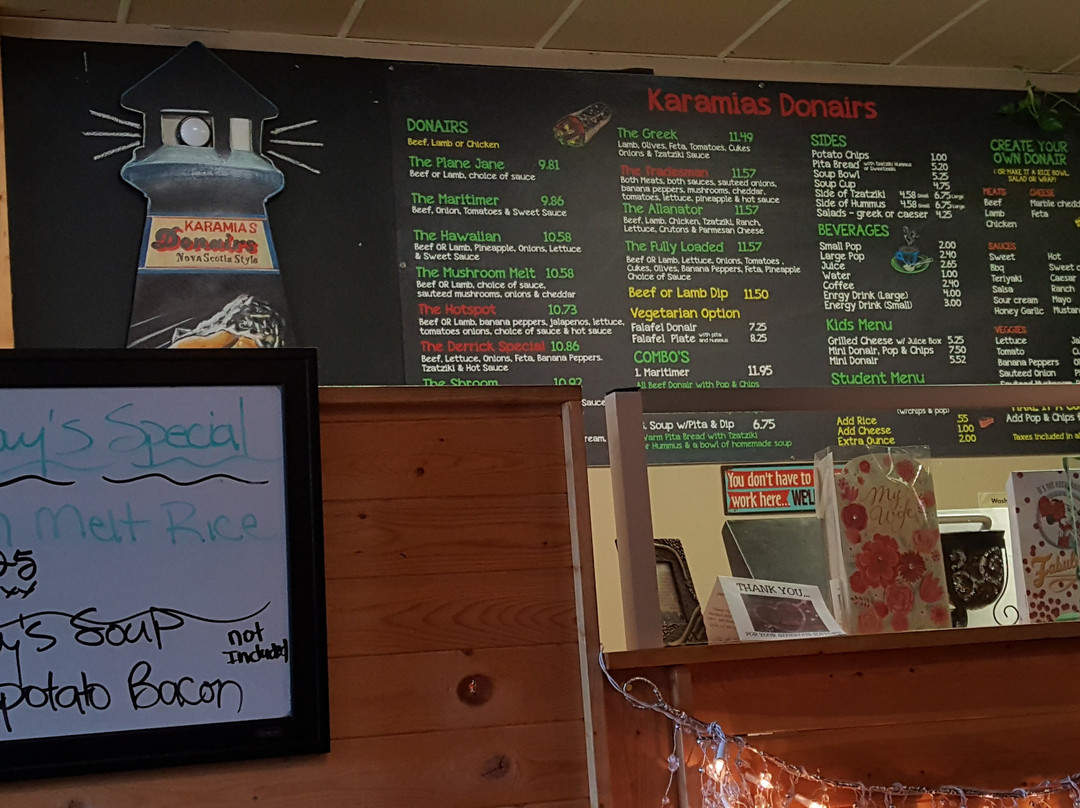 Karamias Donairs
KARAMIAS
Donairs
Nova Scotia Style
DONAIRS
Beef, Lamb or Chicken
The Plane Jane 9.81
Beef or Lamb, choice of sauce
The Maritimer 9.86
Beef, Onion, Tomatoes & Sweet Sauce
The Hawaiian 10.58
Beef OR Lamb, Pineapple, Onions, Lettuce
& Sweet Sauce
The Mushroom Melt 10.58
Beef OR Lamb, choice of sauce,
sauteed mushrooms, onions & cheddar
The Hotspot 10.73
Beef OR Lamb, banana peppers, jalapenos, lettuce,
tomatoes onions, choice of sauce & hot sauce
The Derrick Special 10.86
Beef, Lettuce, Onions, Feta, Banana Peppers.
Tzatziki & Hot Sauce
The Shroom 10.92
The Greek 11.49
Lamb, Olives, Feta, Tomatoes, Cukes
Onions & Tzatziki Sauce
The Tradesman 11.57
Both Meats, both sauces, sauteed onions,
banana peppers, mushrooms, cheddar,
tomatoes, lettuce, pineapple & hot sauce
The Allanator 11.57
Beef, Lamb, Chicken, Tzatziki, Ranch,
Lettuce, Crutons & Parmesan Cheese
The Fully Loaded 11.57
Beef OR Lamb, Lettuce, Onions, Tomatoes,
Cukes, Olives, Banana Peppers, Feta, Pineapple
Choice of Sauce
Beef or Lamb Dip 11.50
Vegetarian Option
Falafel Donair 7.25
Falafel Plate with pita and hummus 8.25
COMBO'S
1. Maritimer 11.95
All Beef Donair with Pop & Chips
Soup w/Pita & Dip 6.75
Warm Pita Bread with Tzatziki
or Hummus & a bowl of homemade soup
SIDES
Potato Chips 1.00
Pita Bread with Tzatziki Hummus or Sweetsauce 5.20
Soup Bowl 5.25
Soup Cup 4.75
Side of Tzatziki 4.58 Small 6.75 Large
Side of Hummus 4.58 Small 6.75 Large
Salads - greek or caeser 4.25
BEVERAGES
Small Pop 2.00
Large Pop 2.40
Juice 2.65
Water 1.00
Coffee 2.40
Enrgy Drink (Large) 4.00
Energy Drink (Small) 3.00
Kids Menu
Grilled Cheese w/ Juice Box 5.25
Mini Donair, Pop & Chips 7.50
Mini Donair 5.52
Student Menu
(w/chips & pop)
Add Rice .55
Add Cheese 1.00
Extra Ounce 2.00
CREATE YOUR
OWN DONAIR
(OR MAKE IT A RICE BOWL
SALAD OR WRAP)
MEATS CHEESE
Beef Marble chedd
Lamb Feta
Chicken
SAUCES
Sweet Hot
Bbq Sweet c
Teriyaki Caesar
Salsa Ranch
Sour cream Mayo
Honey Garlic Mustar
VEGGIES
Lettuce
Tomato
Banana Peppers
Sauteed Onion
Add Pop & Chips f
Taxes included in al
ay's Special
Melt Rice
25
y's Soup
not
Included
potato Bacon
You don't have to
work here... WEL
THANK YOU...
My
Wife
Wash
Fabul